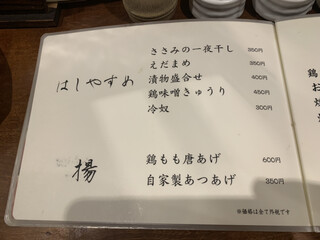 はしやすめ
ささみの一夜干し 350円
えだまめ 350円
漬物盛合せ 400円
鶏味噌きゅうり 450円
冷奴 300円
揚
鶏もも唐あげ 600円
自家製あつあげ 350円
※価格は全て外税です
鶏
お